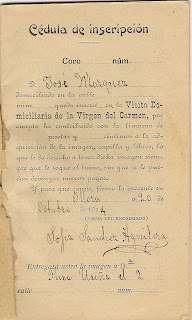 Cédula de inscripción
Coro núm.
D. José Marquez
domiciliado en la calle
núm. queda inscrit en la Visita Do-
miciliaria de la Virgen del Carmen, por
cuanto ha contribuido con la limosna de
pesetas céntimos a la ad-
quisición de la imagen, capilla y libros, lo
que le da derecho a tener dicha imagen siem-
pre que le toque el turno, sin que se le pue-
dan devengar nunca pagos.
Y para que conste, firmo la presente en
a 20 de
Octubre de 19 4
(FIRMA DEL ENCARGADO)
Sofia Sanchez Aguilera
Entregará usted la imagen a D.ª
calle núm.